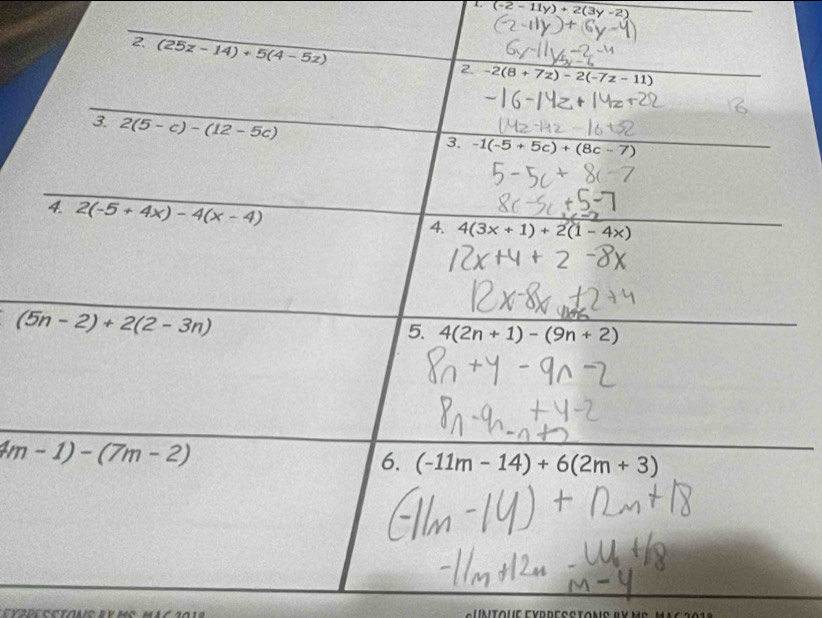 1. (-2 - 11y) + 2(3y - 2)
(-2-11y)+(6y-4)
6y-11y -2-4
-5y-6
2. -2(8 + 7z) - 2(-7z - 11)
-16-14z+14z+22
14z-14z -16+32
3. -1(-5 + 5c) + (8c - 7)
5-5c+ 8c-7
8c-5c+5-7
4. 4(3x + 1) + 2(1 - 4x)
12x+4+2-8x
12x-8x+2+4
5. 4(2n + 1) - (9n + 2)
8n+4-9n-2
8n-9n+4-2
-n+2
6. (-11m - 14) + 6(2m + 3)
(-11m-14)+12m+18
-11m+12m -14+18
m-4
2. (25z - 14) + 5(4 - 5z)
3. 2(5 - c) - (12 - 5c)
4. 2(-5 + 4x) - 4(x - 4)
(5n - 2) + 2(2 - 3n)
4m - 1) - (7m - 2)